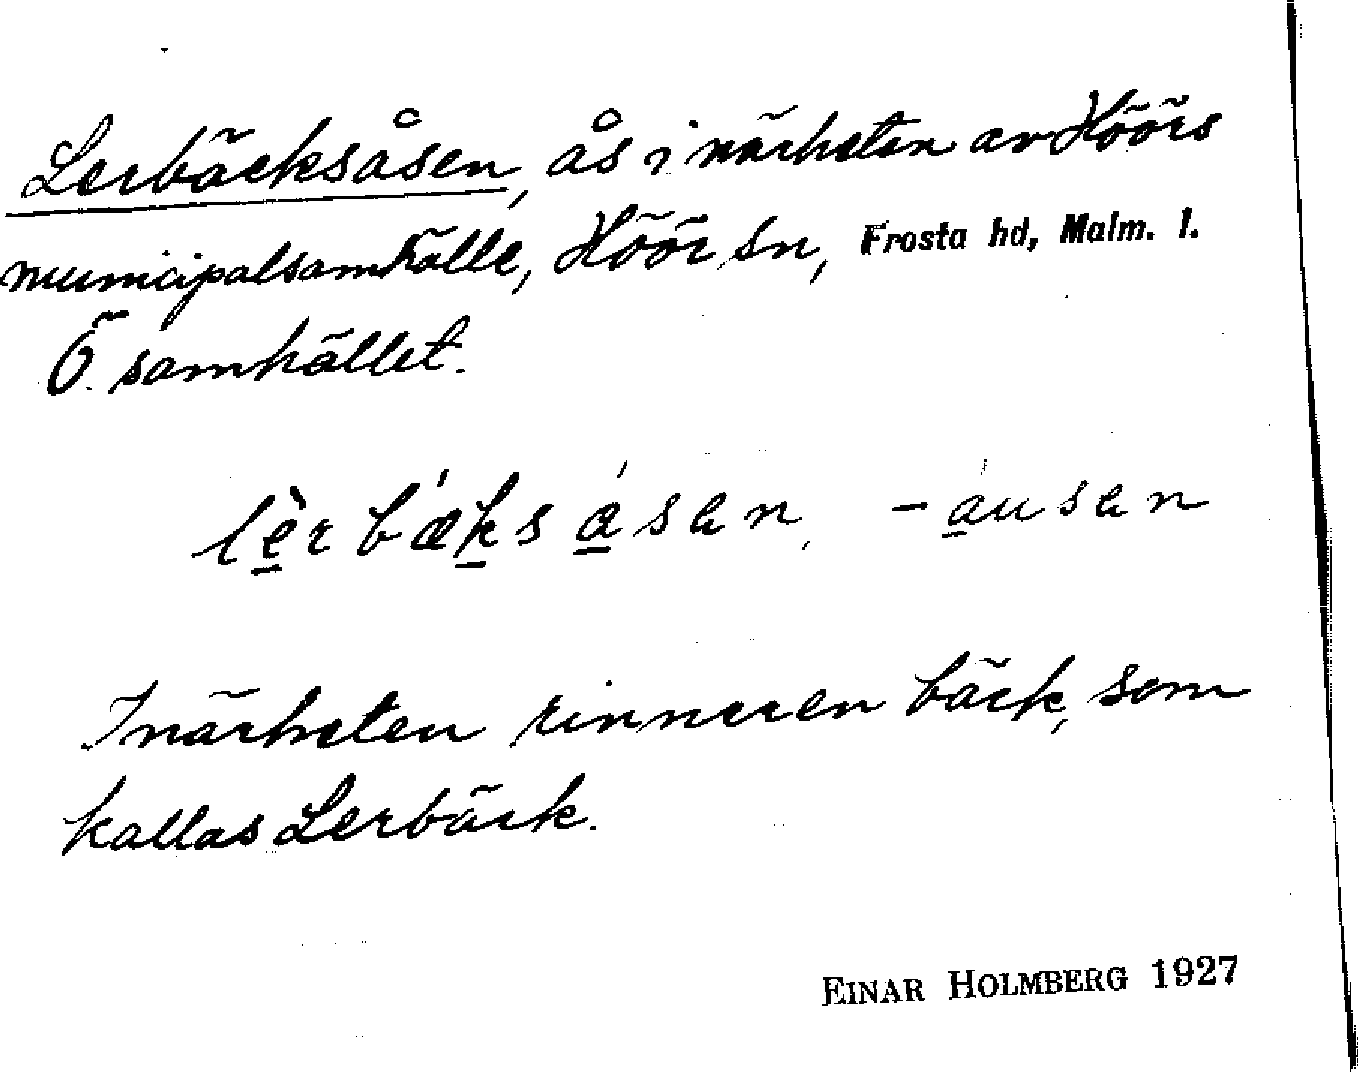 Lerbäcksåsen, ås i närheten av Höörs
municipalsamhälle, Höör sn, Frosta hd, Malm. l.
Ö. samhället.
lèrbæksásen, -áusen
I närheten rinner en bäck, som
kallas Lerbäck.
EINAR HOLMBERG 1927